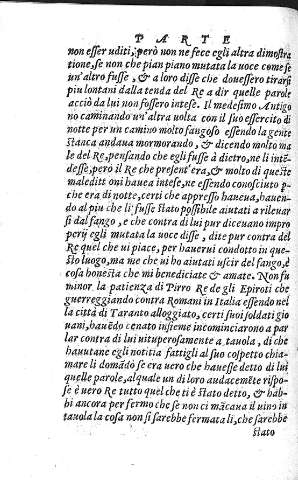 PARTE
non esser uditi, però non ne fece egli altra dimostra
tione, se non che pian piano mutata la uoce come se
un'altro fusse, & a loro disse che douessero tirarsi
piu lontani dalla tenda del Re a dir quelle parole
acciò da lui non fossero intese. Il medesimo Antigo
no caminando un'altra uolta con il suo essercito di
notte per un camino molto fangoso essendo la gente
stanca andaua mormorando, & dicendo molto ma
le del Re, pensando che egli fusse à dietro, ne li intē
desse, però il Re che present'era, & molto di queste
maleditt oni hauea intese, ne essendo conosciuto p
che era di notte, certi che appresso haueua, hauen-
do al piu che li fusse stato possibile aiutati a rileuar
si dal fango, e che contra di lui pur diceuano impro
perij egli mutata la uoce disse, dite pur contra del
Re quel che ui piace, per hauerui condotto in que-
sto luogo, ma me che ui ho aiutati uscir del fango, è
cosa honesta che mi benediciate & amate. Non fu
minor la patienza di Pirro Re de gli Epiroti che
guerreggiando contra Romani in Italia essendo nel
la città di Taranto alloggiato, certi suoi soldati gio
uani, hauēdo cenato insieme incominciarono a par
lar contra di lui uituperosamente a tauola, di che
hauutane egli notitia fattigli al suo cospetto chia-
mare li domādò se era uero che hauesse detto di lui
quelle parole, al quale un di loro audacemēte rispo-
se è uero Re tutto quel che ti è stato detto, & hab-
bi ancora per fermo che se non ci mācaua il uino in
tauola la cosa non si sarebbe fermata li, che sarebbe
stato